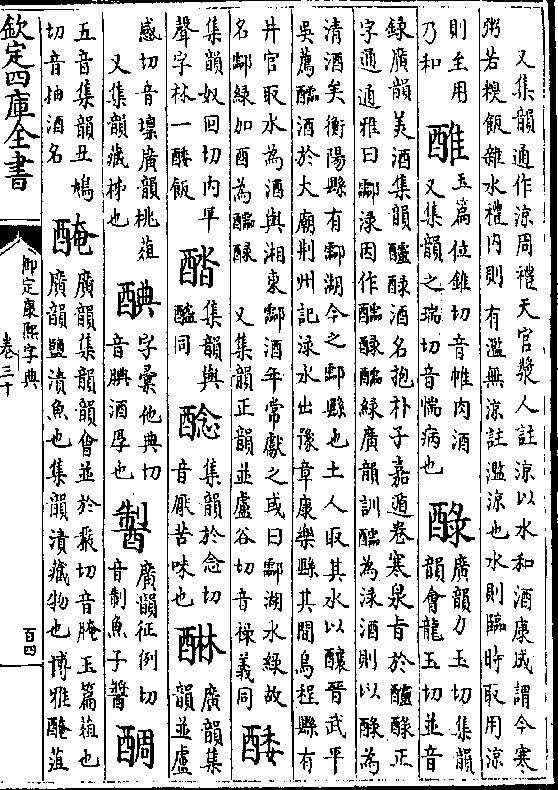 又集韻通作涼周禮天官漿人註涼以水和酒康成謂今寒
粥若糗飯雜水禮內則有濫無涼註濫涼也水則臨時取用涼
則至用
乃和
玉篇位錐切音帷肉酒
又集韻之瑞切音惴病也
醁
廣韻力玉切集韻
韻會龍玉切並音
錄廣韻美酒集韻醽醁酒名抱朴子嘉遁卷寒泉旨於醽醁正
字通通雅曰酃淥因作醽醁醽綠廣韻訓醽為淥酒則以醁為
清酒矣衡陽縣有酃湖今之酃縣也土人取其水以釀晉武平
吳薦醽酒於太廟荆州記淥水出豫章康樂縣其間烏程縣有
井官取水為酒與湘東酃酒年常獻之或曰酃湖水綠故
名酃綠加酉為醽醁 又集韻正韻並盧谷切音祿義同
集韻奴回切內平
聲字林一酸飯
集韻與
同
集韻於念切
音厭苦味也
醂
廣韻集
韻並盧
感切音壈廣韻桃葅
又集韻藏柹也
字彙他典切
音腆酒厚也
廣韻征例切
音制魚子醬
五音集韻丑鳩
切音抽酒名
醃
廣韻集韻韻會並於嚴切音腌玉篇葅也
廣韻鹽漬魚也集韻漬藏物也博雅醃葅
欽定四庫全書
御定康熙字典
卷三十
百四